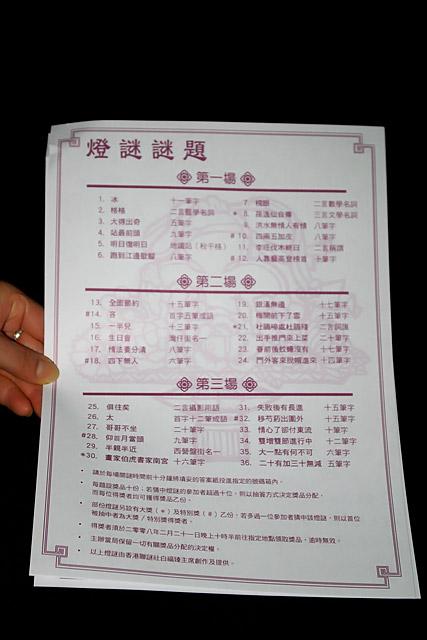 燈謎謎題
第一場
1. 冰 十一筆字
2. 格格 二言醫學名詞
3. 大得出奇 五筆字
4. 站最前頭 九筆字
5. 明日復明日 地鐵站（秋千格）
6. 跑到江邊歇腳 八筆字
7. 二言數學名詞
* 8. 三言文學名詞
9. 洪水無情人有情 八筆字
# 10. 四兩五加皮 八筆字
11. 二言稱謂
# 12. 人為藝高登榜首 十筆字
第二場
13. 全面節約 十五筆字
#14. 吝 首字五筆成語
15. 一半兒 十三筆字
16. 生日會 灣仔街名一
17. 情法要分清 八筆字
#18. 四下無人 六筆字
19. 銀漢無邊 十七筆字
20. 梅開前下了雲 十五筆字
*21. 二言詞牌
22. 出手推門來上菜 二十筆字
23. 十七筆字
24. 門外客來脫帽進來 十四筆字
第三場
25. 俱往矣 二言攝影用語
26. 太 首字十二筆成語
27. 哥哥不坐 二十筆字
#28. 仰首月當頭 九筆字
29. 半親半近 西營盤街名一
*30. 畫家伯虎書家南宮 十六筆字
31. 失敗後有長進 十五筆字
#32. 移芍葯出圃外 五筆字
33. 情心了卻付東流 十筆字
34. 雙增雙節進行中 十二筆字
35. 大一點有何不可 六筆字
36. 二十有加三十無減 五筆字
• 請於每場開謎時間前十分鐘將填妥的答案紙投進指定的號碼箱內。
• 每題設獎品十份；若猜中燈謎的參加者超過十位，則以抽簽方式決定獎品分配，
而每位得獎者均可獲得獎品乙份。
• 部份燈謎另設有大獎（*）及特別獎（#）乙份，若多過一位參加者猜中該燈謎，則以首位
被抽中者為大獎／特別獎得獎者。
• 得獎者須於二零零八年二月二十一日晚上十時半前往指定地點領取獎品，逾時無效。
• 主辦當局保留一切有關獎品分配的決定權。
• 以上燈謎由香港聯謎社白福臻主席創作及提供。